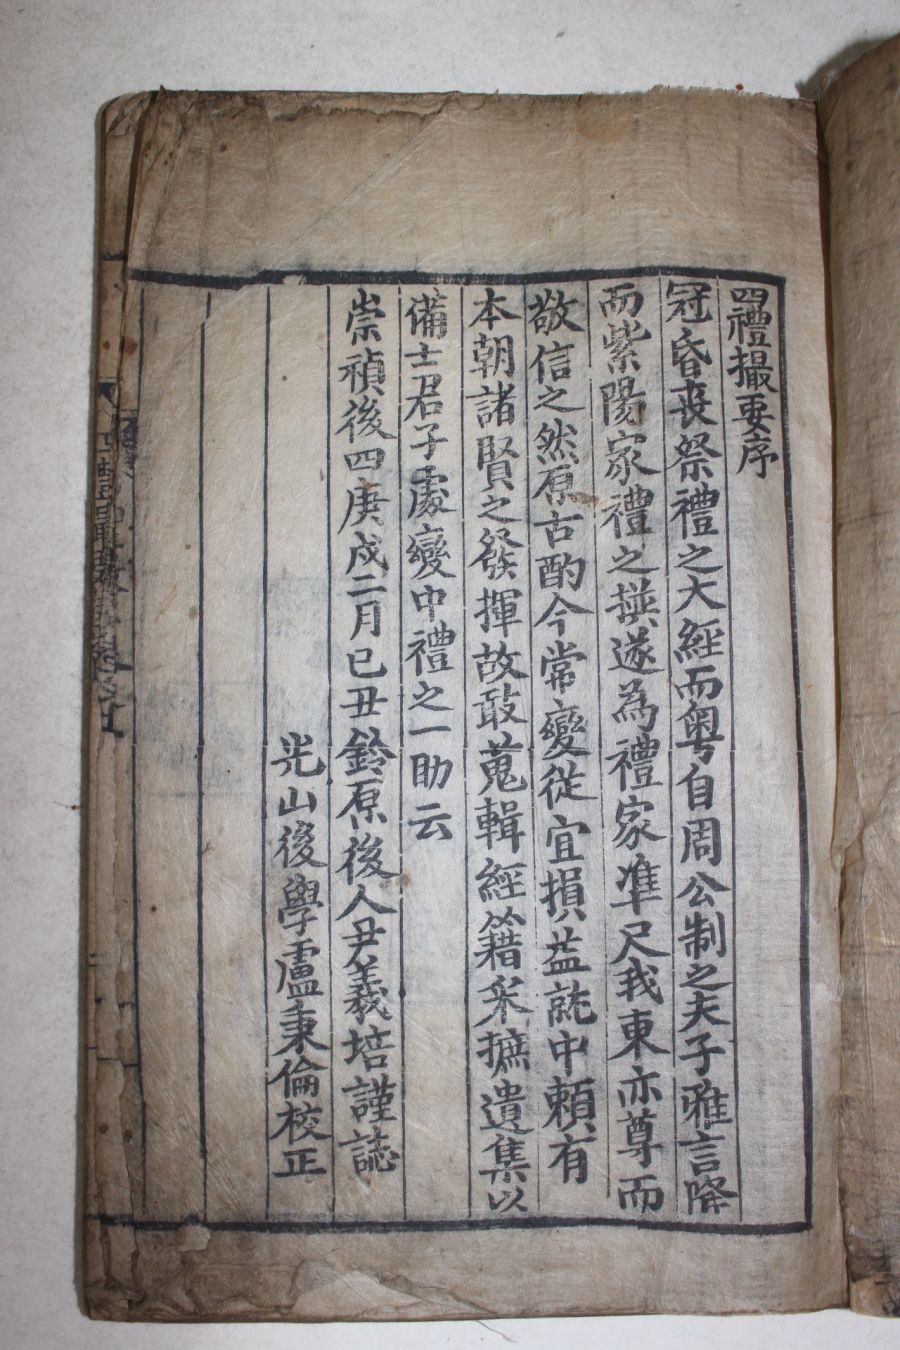 四禮撮要序
冠昏喪祭禮之大經而粤自周公制之夫子雅言降
而紫陽家禮之撰遂為禮家準尺我東亦尊而
敬信之然原古酌今常變從宜損益就中賴有
本朝諸賢之發揮故敢蒐輯經籍采摭遺集以
備士君子處變中禮之一助云
崇禎後四庚戍二月已丑鈴原後人尹羲培謹誌
光山後學盧秉倫校正